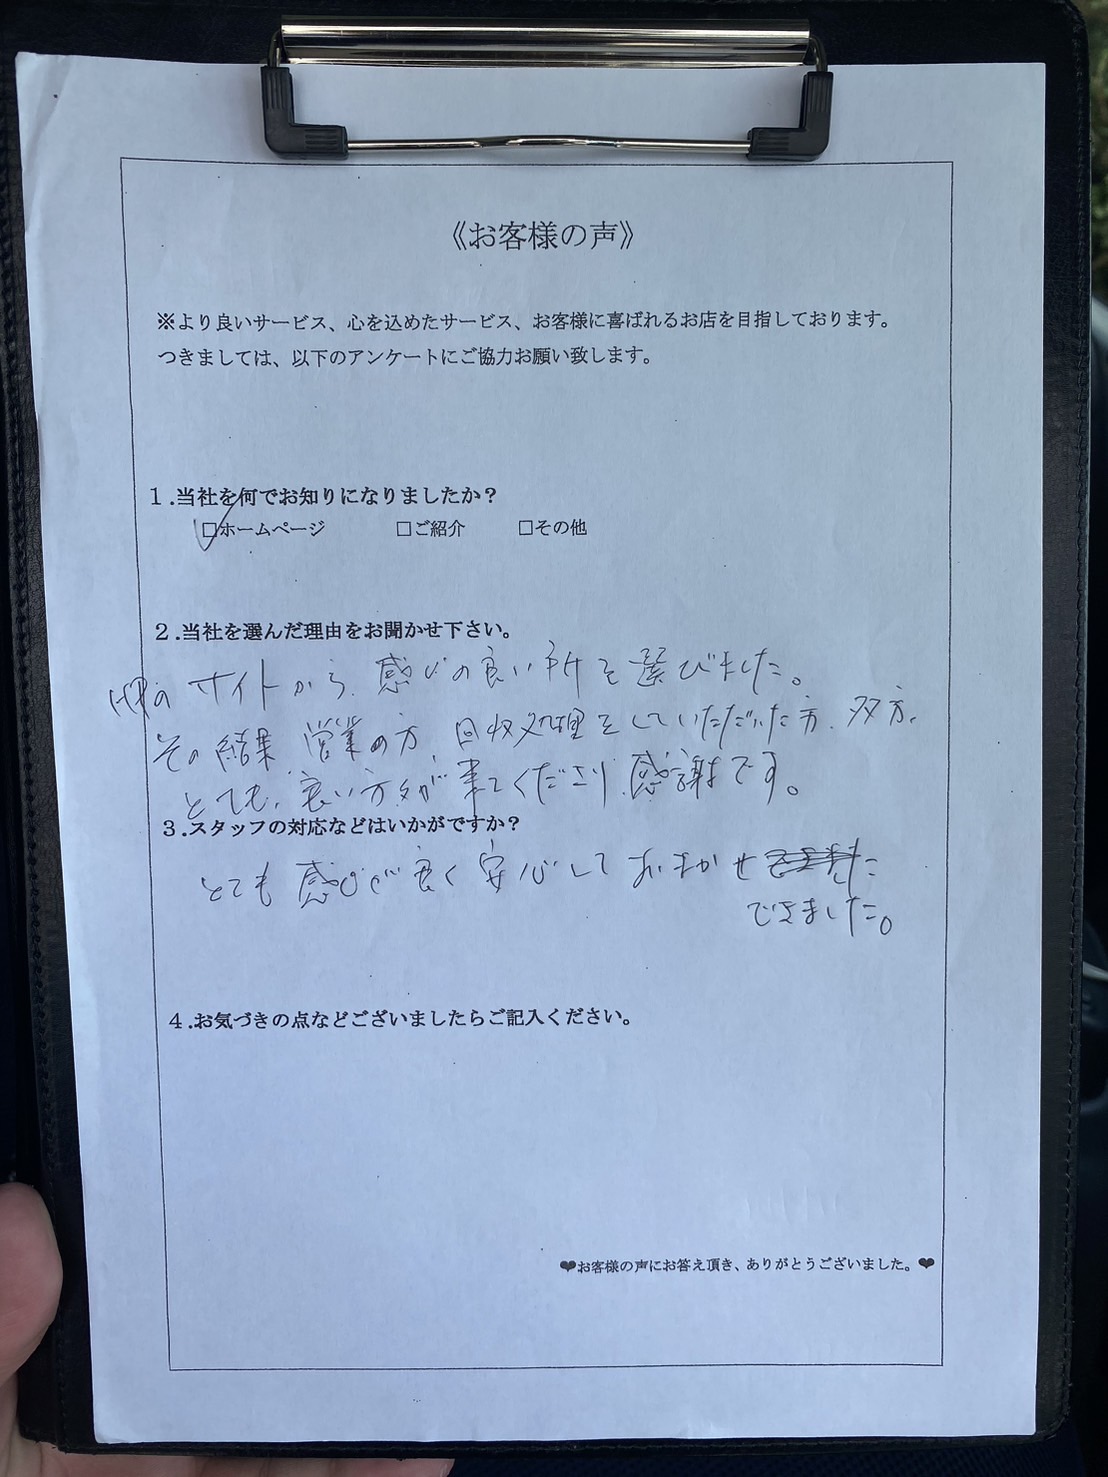 《お客様の声》
※より良いサービス、心を込めたサービス、お客様に喜ばれるお店を目指しております。
つきましては、以下のアンケートにご協力お願い致します。
1.当社を何でお知りになりましたか？
☑ホームページ □ご紹介 □その他
2.当社を選んだ理由をお聞かせ下さい。
HPのサイトから、感じの良い所を選びました。
その結果、営業の方、回収処理をしていただいた方、双方、
とても、良い方々が来てくださり、感謝です。
3.スタッフの対応などはいかがですか？
とても感じが良く安心しておまかせ
できました。
4.お気づきの点などございましたらご記入ください。
❤お客様の声にお答え頂き、ありがとうございました。❤